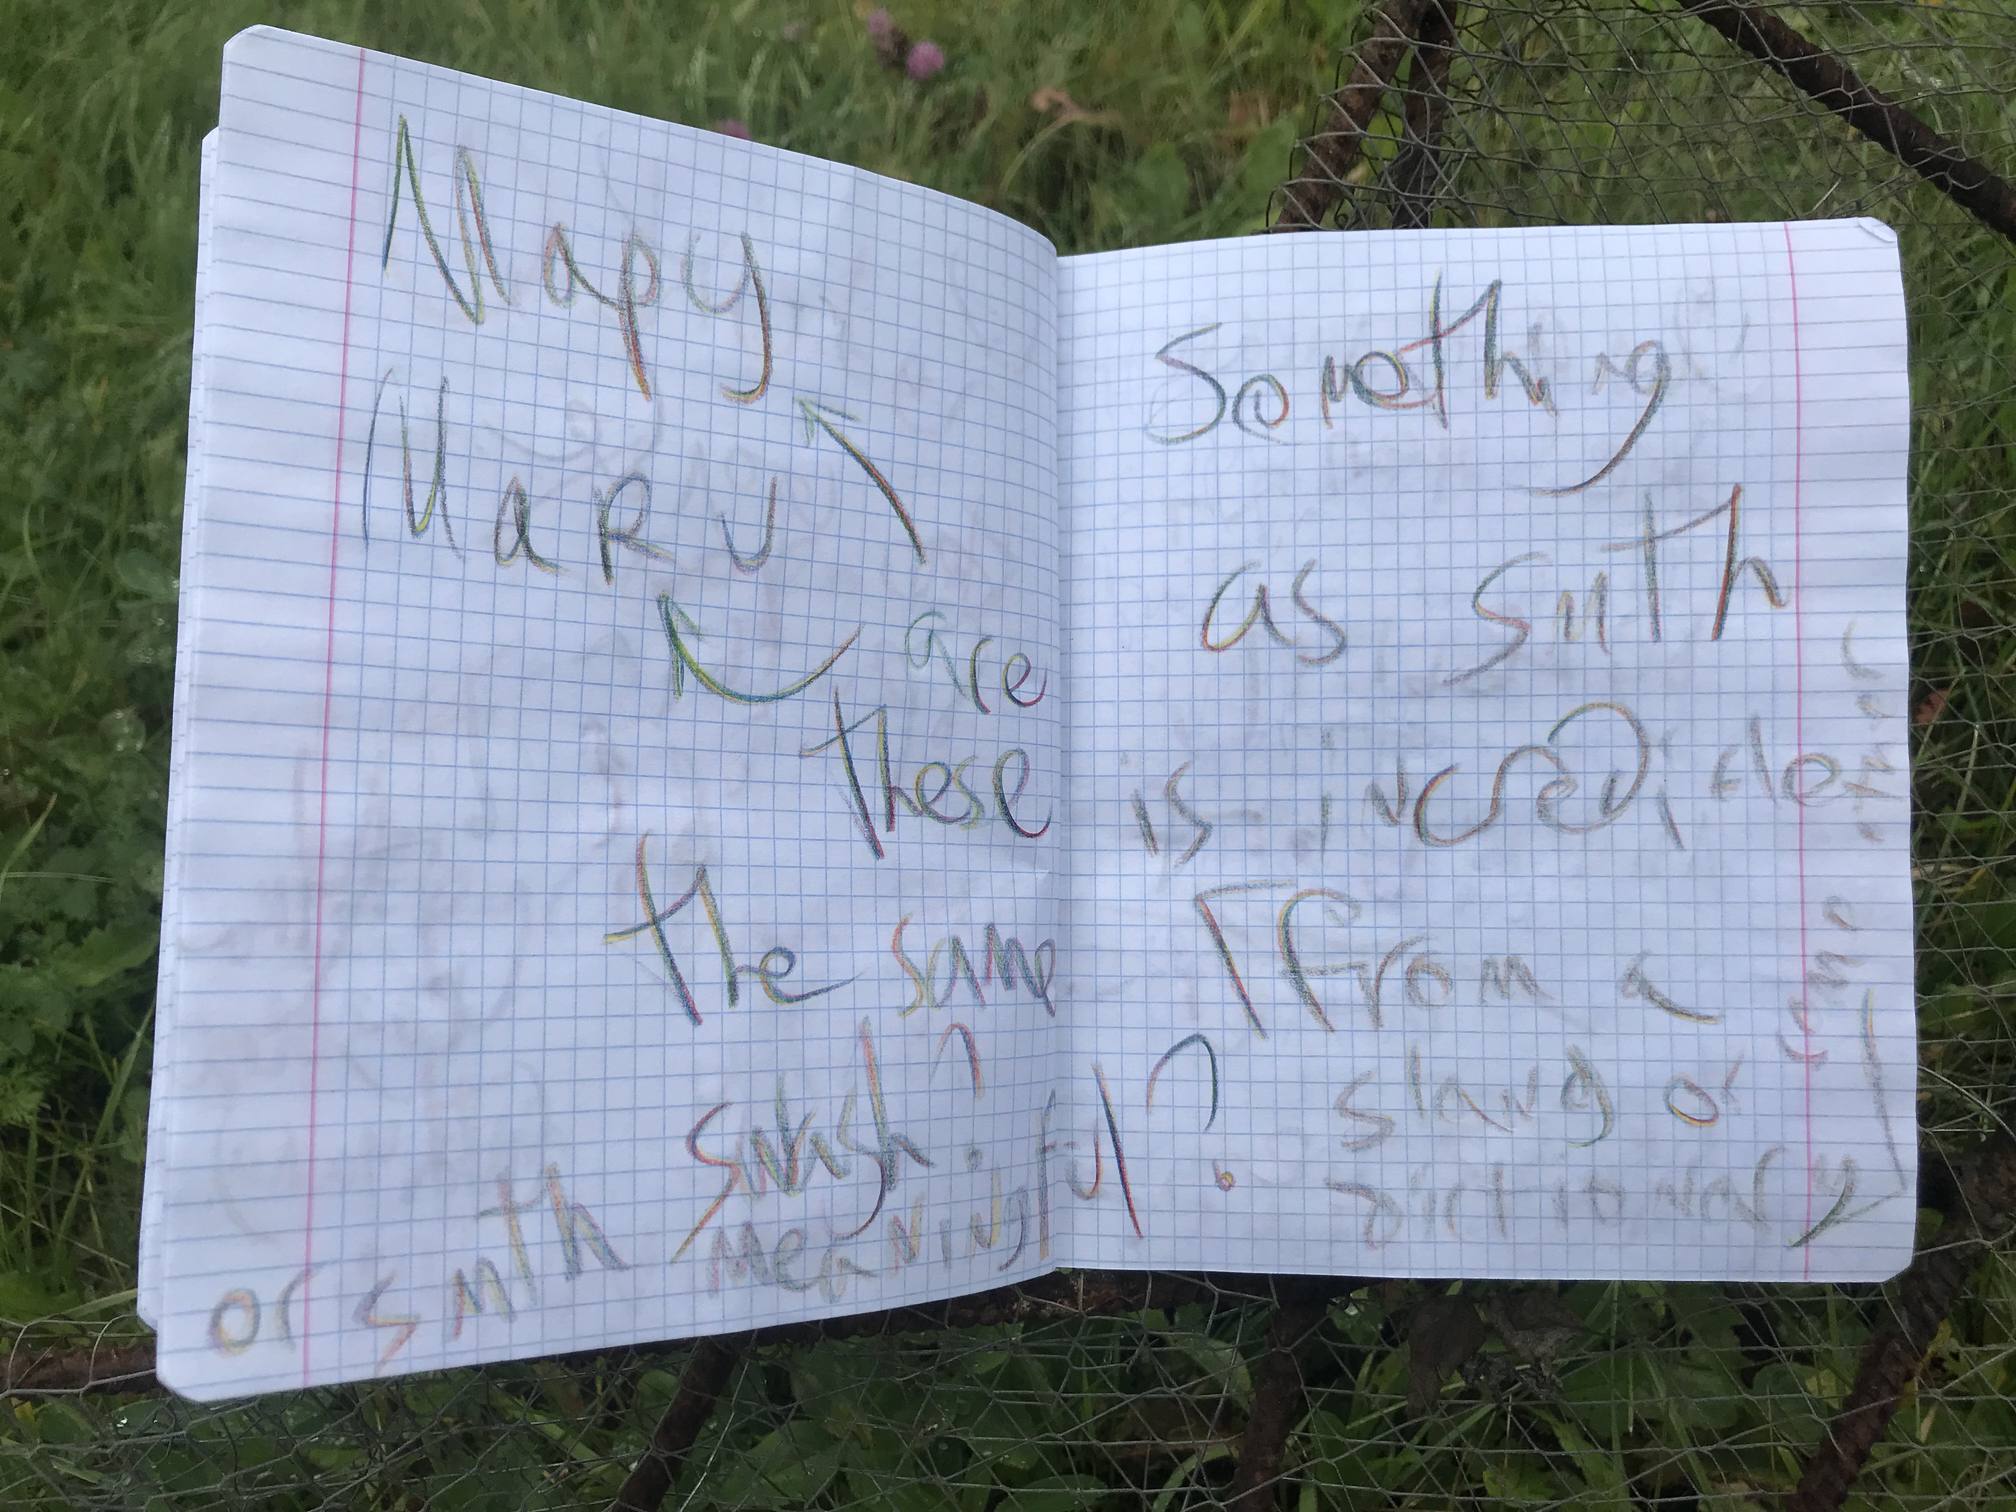 Mapy
MaRu
are
these
the same
or smth meaningful?
Something
as smth
is incredible
from a
slang or
some other
dictionary